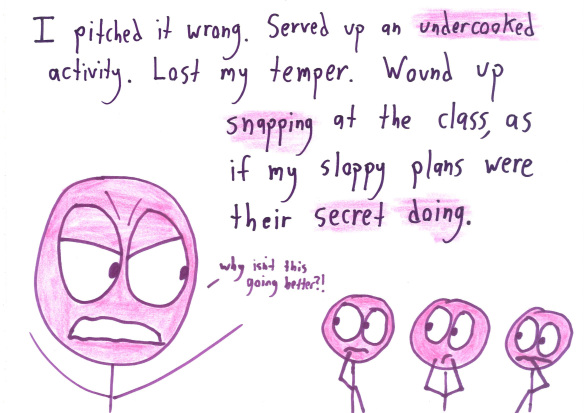 I pitched it wrong. Served up an undercooked
activity. Lost my temper. Wound up
snapping at the class, as
if my sloppy plans were
their secret doing.
why isn't this
going better?!